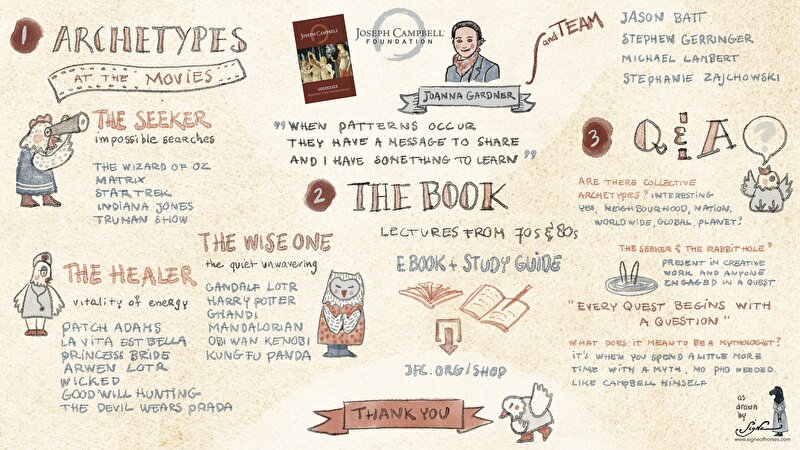 1 ARCHETYPES
AT THE MOVIES
THE SEEKER
impossible searches
THE WIZARD OF OZ
MATRIX
STAR TREK
INDIANA JONES
TRUMAN SHOW
THE WISE ONE
the quiet unwavering
GANDALF LOTR
HARRY POTTER
GHANDI
MANDALORIAN
OBI WAN KENOBI
KUNG FU PANDA
THE HEALER
vitality of energy
PATCH ADAMS
LA VITA EST BELLA
PRINCESS BRIDE
ARWEN LOTR
WICKED
GOOD WILL HUNTING
THE DEVIL WEARS PRADA
JOSEPH CAMPBELL
GODDESSES
JOSEPH CAMPBELL
FOUNDATION
JOANNA GARDNER
and TEAM
JASON BATT
STEPHEN GERRINGER
MICHAEL LAMBERT
STEPHANIE ZAJCHOWSKI
"WHEN PATTERNS OCCUR
THEY HAVE A MESSAGE TO SHARE
AND I HAVE SOMETHING TO LEARN"
2 THE BOOK
LECTURES FROM 70s & 80s
EBOOK + STUDY GUIDE
JFC.ORG/SHOP
THANK YOU
3 Q & A
?
ARE THERE COLLECTIVE
ARCHETYPES? INTERESTING
YES, NEIGHBOURHOOD, NATION,
WORLDWIDE, GLOBAL, PLANET?
THE SEEKER & THE RABBIT HOLE"
PRESENT IN CREATIVE
WORK AND ANYONE
ENGAGED IN A QUEST
"EVERY QUEST BEGINS WITH
A QUESTION"
WHAT DOES IT MEAN TO BE A MYTHOLOGIST?
IT'S WHEN YOU SPEND A LITTLE MORE
TIME WITH A MYTH, NO PHD NEEDED.
LIKE CAMPBELL HIMSELF
as
drawn
by
Signe
www.signeofhorses.com